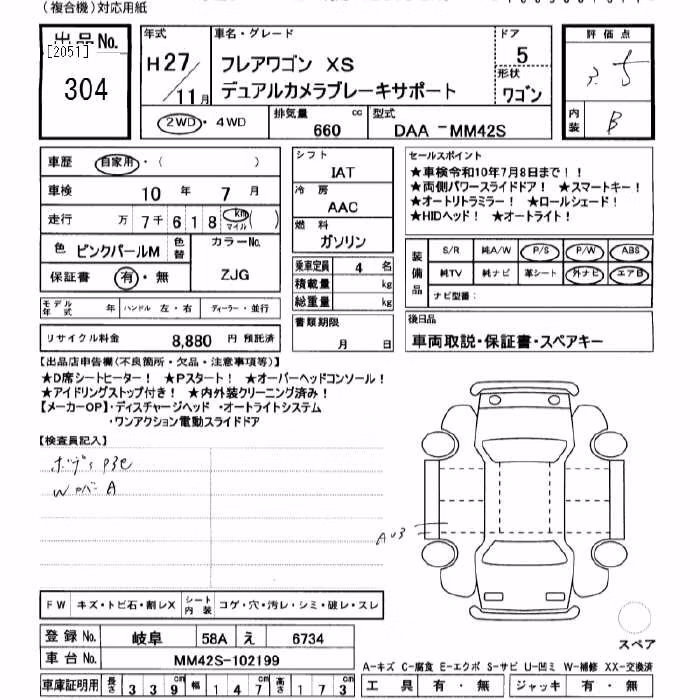 (複合機)対応用紙
出品No.
[2051]
304
年式
H27/11月
車名・グレード
フレアワゴン XS
デュアルカメラブレーキサポート
ドア
5
形状
ワゴン
2WD・4WD
排気量
660 cc
型式
DAA-MM42S
評価点
3.5
内装
B
車歴 自家用・( )
車検 10年 7月
走行 万7千618 km マイル ( )
色 ピンクパールM
色替
カラーNo.
ZJG
保証書 有・無
モデル年式 年
ハンドル 左・右
ディーラー・並行
リサイクル料金 8,880 円 預託済
シフト
IAT
冷房
AAC
燃料
ガソリン
乗車定員 4 名
積載量 kg
総重量 kg
書類期限
月 日
セールスポイント
★車検令和10年7月8日まで!!
★両側パワースライドドア! ★スマートキー!
★オートリトラミラー! ★ロールシェード!
★HIDヘッド! ★オートライト!
装備品
S/R 純A/W P/S P/W ABS
純TV 純ナビ 革シート 外ナビ エアB
ナビ型番:
後日品
車両取説・保証書・スペアキー
【出品店申告欄(不良箇所・欠品・注意事項等)】
★D席シートヒーター! ★Pスタート! ★オーバーヘッドコンソール!
★アイドリングストップ付き! ★内外装クリーニング済み!
【メーカーOP】・ディスチャージヘッド ・オートライトシステム
・ワンアクション電動スライドドア
【検査員記入】
A
FW キズ・トビ石・割レX
シート内装 コゲ・穴・汚レ・シミ・破レ・スレ
登録No. 岐阜 58A え 6734
車台No. MM42S-102199
車庫証明用 長さ 339 幅 147 高さ 173
スペア
A-キズ C-腐食 E-エクボ S-サビ U-凹ミ W-補修 XX-交換済
工具 有・無 ジャッキ 有・無